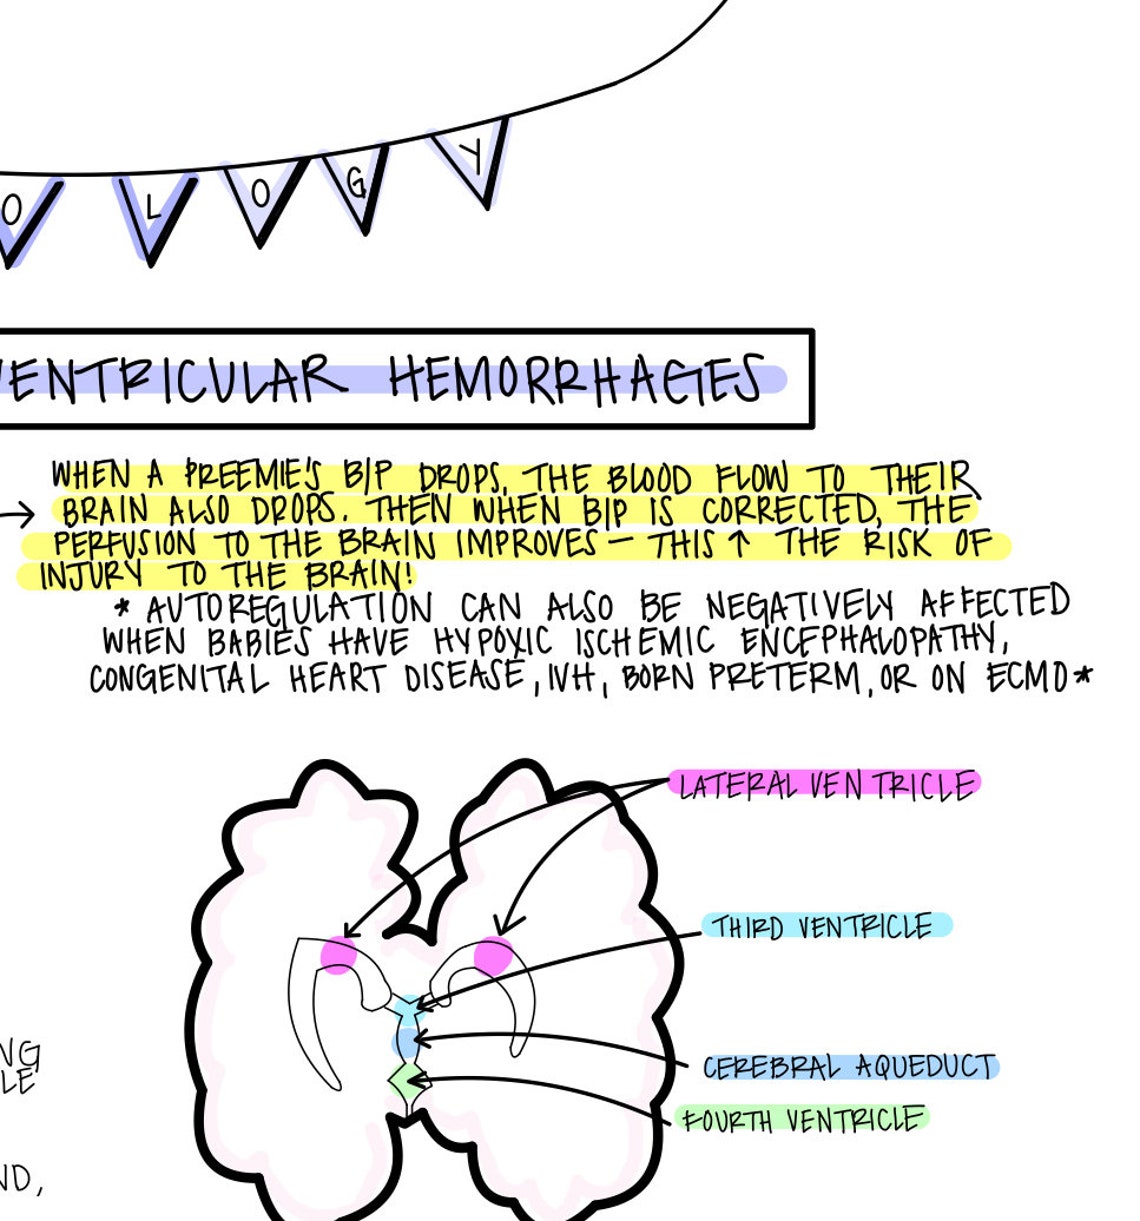 O L O G Y
VENTRICULAR HEMORRHAGES
WHEN A PREEMIE'S B/P DROPS, THE BLOOD FLOW TO THEIR
→ BRAIN ALSO DROPS. THEN WHEN B/P IS CORRECTED, THE
PERFUSION TO THE BRAIN IMPROVES – THIS ↑ THE RISK OF
INJURY TO THE BRAIN!
* AUTOREGULATION CAN ALSO BE NEGATIVELY AFFECTED
WHEN BABIES HAVE HYPOXIC ISCHEMIC ENCEPHALOPATHY,
CONGENITAL HEART DISEASE, IVH, BORN PRETERM, OR ON ECMO*
LATERAL VENTRICLE
THIRD VENTRICLE
NG
LE
CEREBRAL AQUEDUCT
FOURTH VENTRICLE
ND,